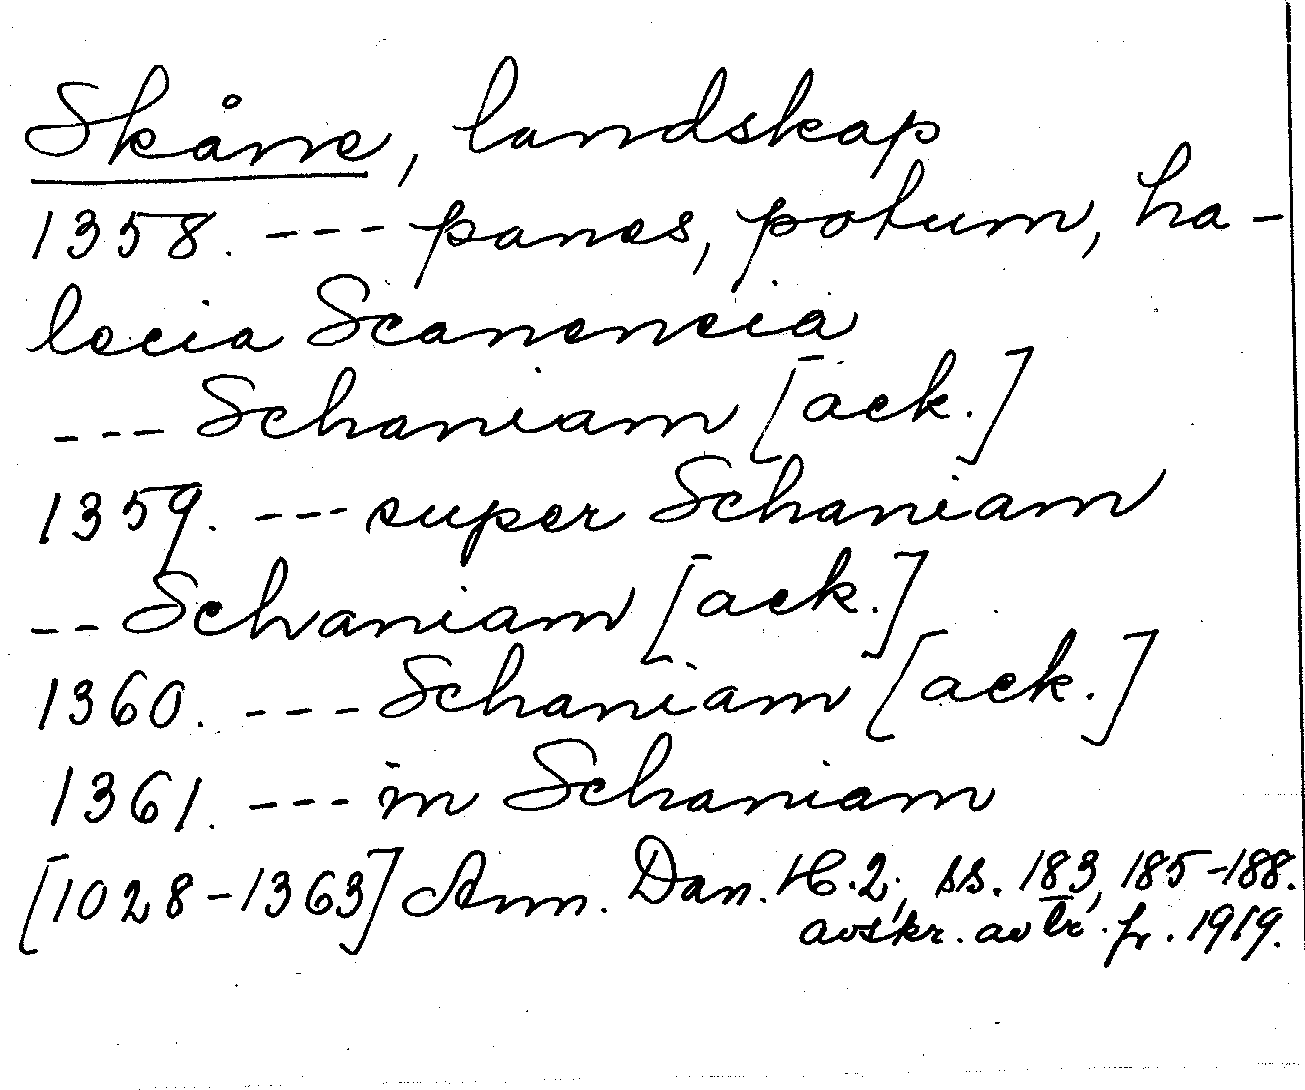 Skåne, landskap
1358. --- panes, potum, ha-
lecia Scanencia
--- Schaniam [ack.]
1359. --- super Schaniam
-- Schaniam [ack.]
1360. --- Schaniam [ack.]
1361. --- in Schaniam
[1028-1363] Ann. Dan. H.2, ss. 183, 185-188.
avskr. av tr. fr. 1919.